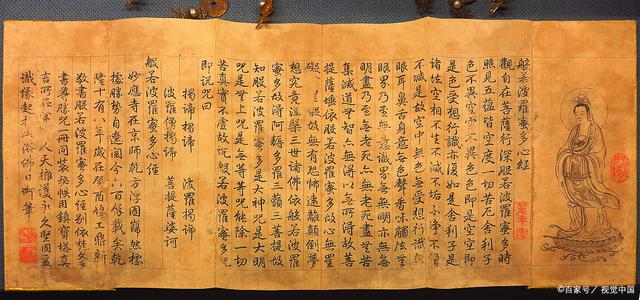 般若波羅蜜多心經
觀自在菩薩行深般若波羅蜜多時
照見五蘊皆空度一切苦厄舍利子
色不異空空不異色色即是空空即
是色受想行識亦復如是舍利子是
諸法空相不生不滅不垢不淨不增
不減是故空中無色無受想行識無
眼耳鼻舌身意無色聲香味觸法無
眼界乃至無意識界無無明亦無無
明盡乃至無老死亦無老死盡無苦
集滅道無智亦無得以無所得故菩
提薩埵依般若波羅蜜多故心無罣
礙無罣礙故無有恐怖遠離顛倒夢
想究竟涅槃三世諸佛依般若波羅
蜜多故得阿耨多羅三藐三菩提故
知般若波羅蜜多是大神咒是大明
咒是無上咒是無等等咒能除一切
苦真實不虛故說般若波羅蜜多咒
即說咒曰
揭諦揭諦 波羅揭諦
波羅僧揭諦 菩提薩婆訶
般若波羅蜜多心經
妙應寺在京師乾方浮圖巋然標
據勝勢自遼閱今六百餘載矣乾
隆十有八年歲在癸酉鳩工鼎新
敬書般若波羅蜜多心經別依梵
書尊勝咒一冊同裝秘帙用鎮寶塔真
言所在 人天擁護永久堅固爰
識緣起 浴佛日御筆
©百家号/视觉中国